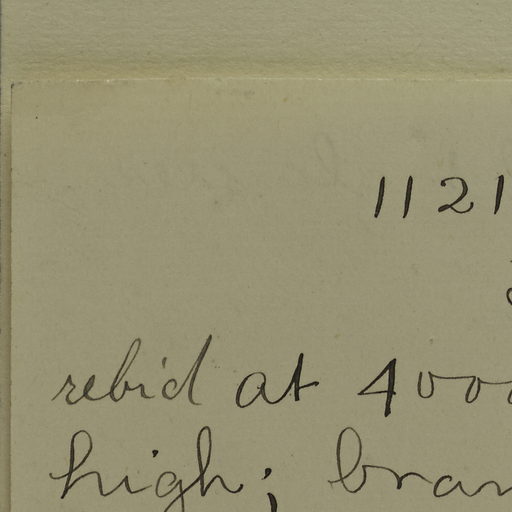 1121
rebid at 4000
high; bran